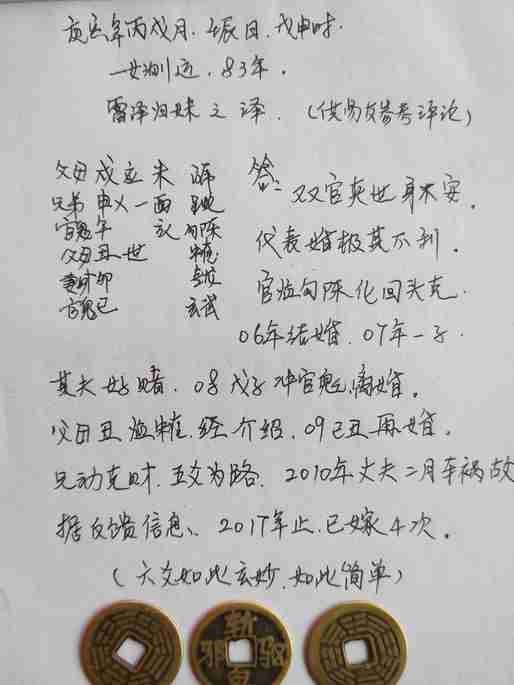 庚寅年丙戌月.壬辰日,戊申时.
一女测运.83年.
雷泽归妹之泽.(供易友参考评论)
父母戌应未
兄弟申乂一酉
官鬼午 勾陈
父母丑一世 朱雀
妻财卯 青龙
官鬼巳 玄武
答:双官夹世身不安.
代表婚极其不利.
官临勾陈化回头克.
06年结婚.07年一子.
其夫好赌.08戊子冲官鬼,离婚.
父母丑临朱雀.经介绍.09己丑再婚.
兄动克财.五爻为路.2010年丈夫二月车祸故
据反馈信息、2017年止.已嫁4次。
(六爻如此玄妙.如此简单)